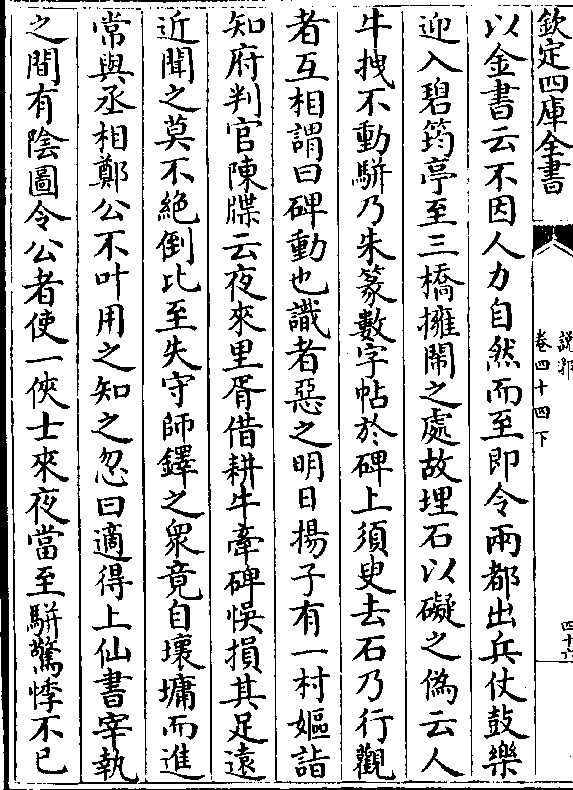 欽定四庫全書
説郛
卷四十四下
四十六
以金書云不因人力自然而至即令兩都出兵仗鼓樂
迎入碧筠亭至三橋擁鬧之處故埋石以礙之偽云人
牛拽不動駢乃朱篆數字帖於碑上須叟去石乃行觀
者互相謂曰碑動也識者惡之明日揚子有一村嫗詣
知府判官陳牒云夜來里胥借耕牛牽碑悞損其足遠
近聞之莫不絶倒比至失守師鐸之衆竟自壞墉而進
常與丞相鄭公不叶用之知之忽曰適得上仙書宰執
之間有陰圖令公者使一俠士來夜當至駢驚悸不已